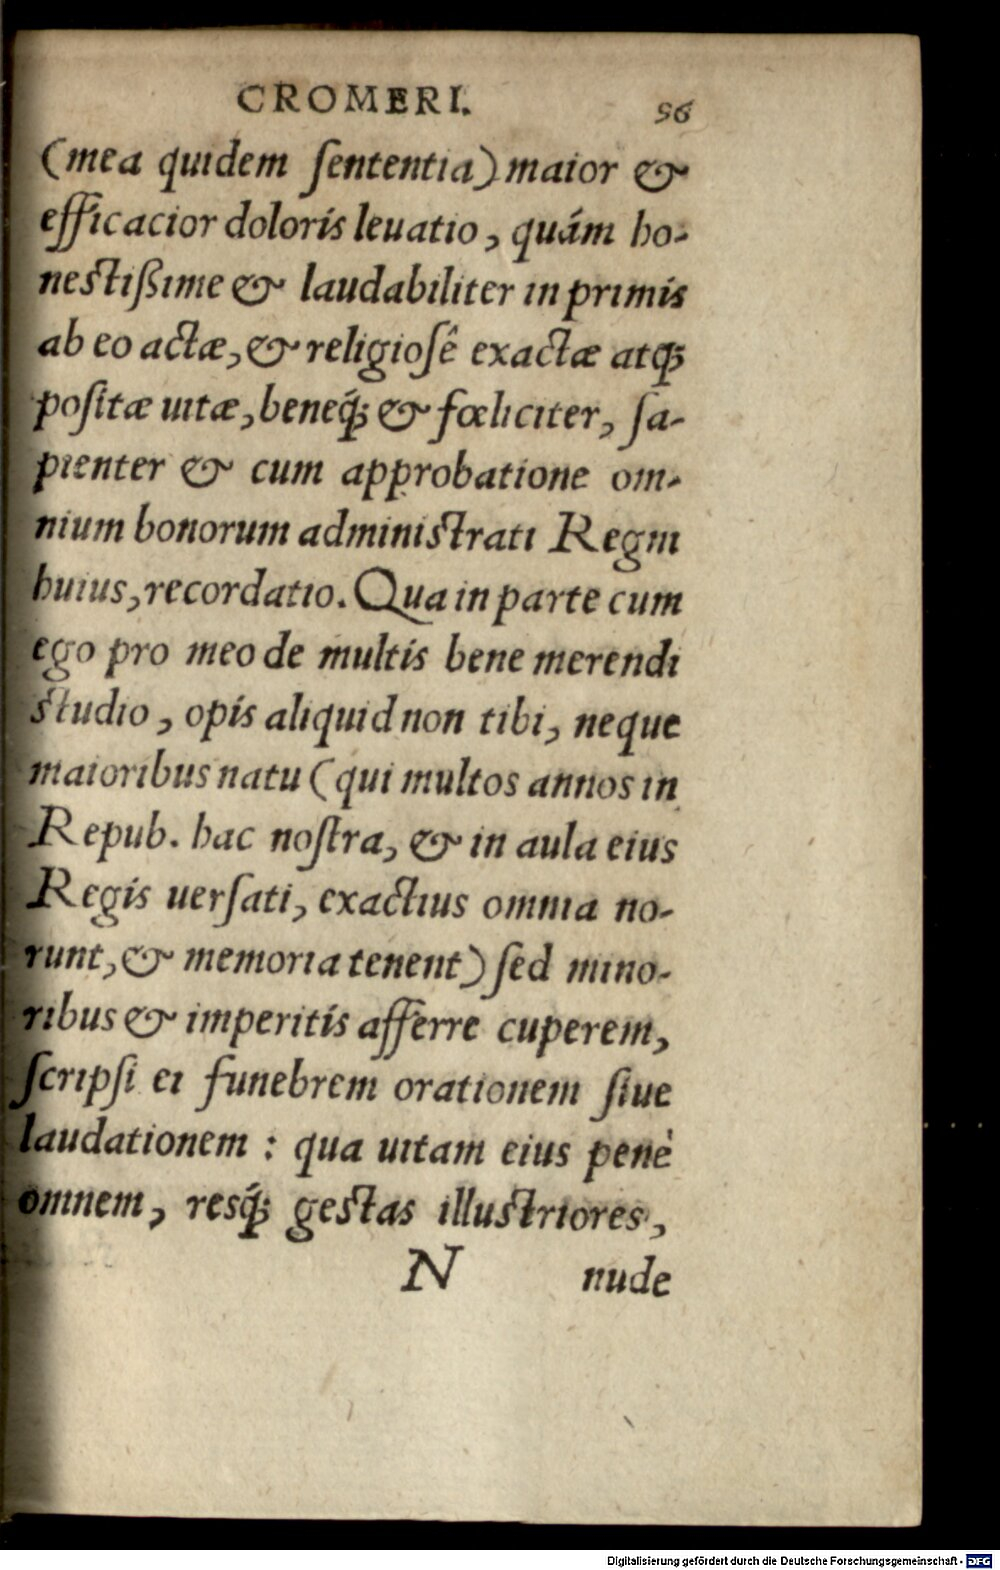 CROMERI. 96
(mea quidem ſententia) maior &
efficacior doloris leuatio, quám ho-
neſtißime & laudabiliter in primis
ab eo actæ, & religioſê exactæ atq;
poſitæ uitæ, beneq́; & fœliciter, ſa-
pienter & cum approbatione om-
nium bonorum adminiſtrati Regni
huius, recordatio. Qua in parte cum
ego pro meo de multis bene merendi
ſtudio, opis aliquid non tibi, neque
maioribus natu (qui multos annos in
Repub. hac noſtra, & in aula eius
Regis uerſati, exactius omnia no-
runt, & memoria tenent) ſed mino-
ribus & imperitis afferre cuperem,
ſcripſi ei funebrem orationem ſiue
laudationem : qua uitam eius penè
omnem, resq́; geſtas illuſtriores,
N nude
Digitalisierung gefördert durch die Deutsche Forschungsgemeinschaft - DFG